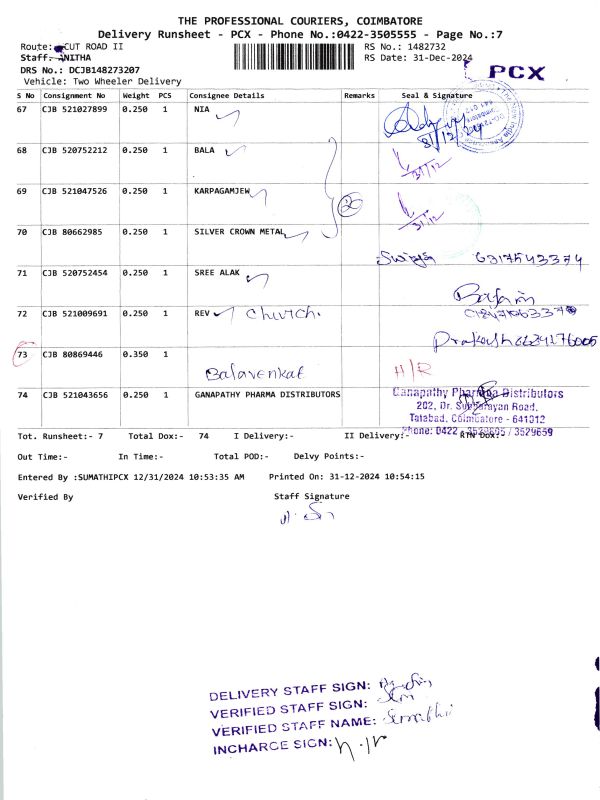 THE PROFESSIONAL COURIERS, COIMBATORE
Delivery Runsheet - PCX - Phone No.:0422-3505555 - Page No.:7
Route: CUT ROAD II RS No.: 1482732
Staff: ANITHA RS Date: 31-Dec-2024
DRS No.: DCJB148273207 PCX
Vehicle: Two Wheeler Delivery
S No Consignment No Weight PCS Consignee Details Remarks Seal & Signature
67 CJB 521027899 0.250 1 NIA
31/12/24
68 CJB 520752212 0.250 1 BALA
31/12
69 CJB 521047526 0.250 1 KARPAGAMJEW
31/12
70 CJB 80662985 0.250 1 SILVER CROWN METAL
71 CJB 520752454 0.250 1 SREE ALAK
72 CJB 521009691 0.250 1 REV church.
73 CJB 80869446 0.350 1 H/R
Balavenkat
74 CJB 521043656 0.250 1 GANAPATHY PHARMA DISTRIBUTORS Ganapathy Pharma Distributors
202, Dr. Subbarayan Road,
Tatabad, Coimbatore - 641012
Phone: 0422 - / 3529659
Tot. Runsheet:- 7 Total Dox:- 74 I Delivery:- II Delivery:- RTN Dox:-
Out Time:- In Time:- Total POD:- Delvy Points:-
Entered By :SUMATHIPCX 12/31/2024 10:53:35 AM Printed On: 31-12-2024 10:54:15
Verified By Staff Signature
DELIVERY STAFF SIGN:
VERIFIED STAFF SIGN:
VERIFIED STAFF NAME: Sumathi
INCHARGE SIGN: